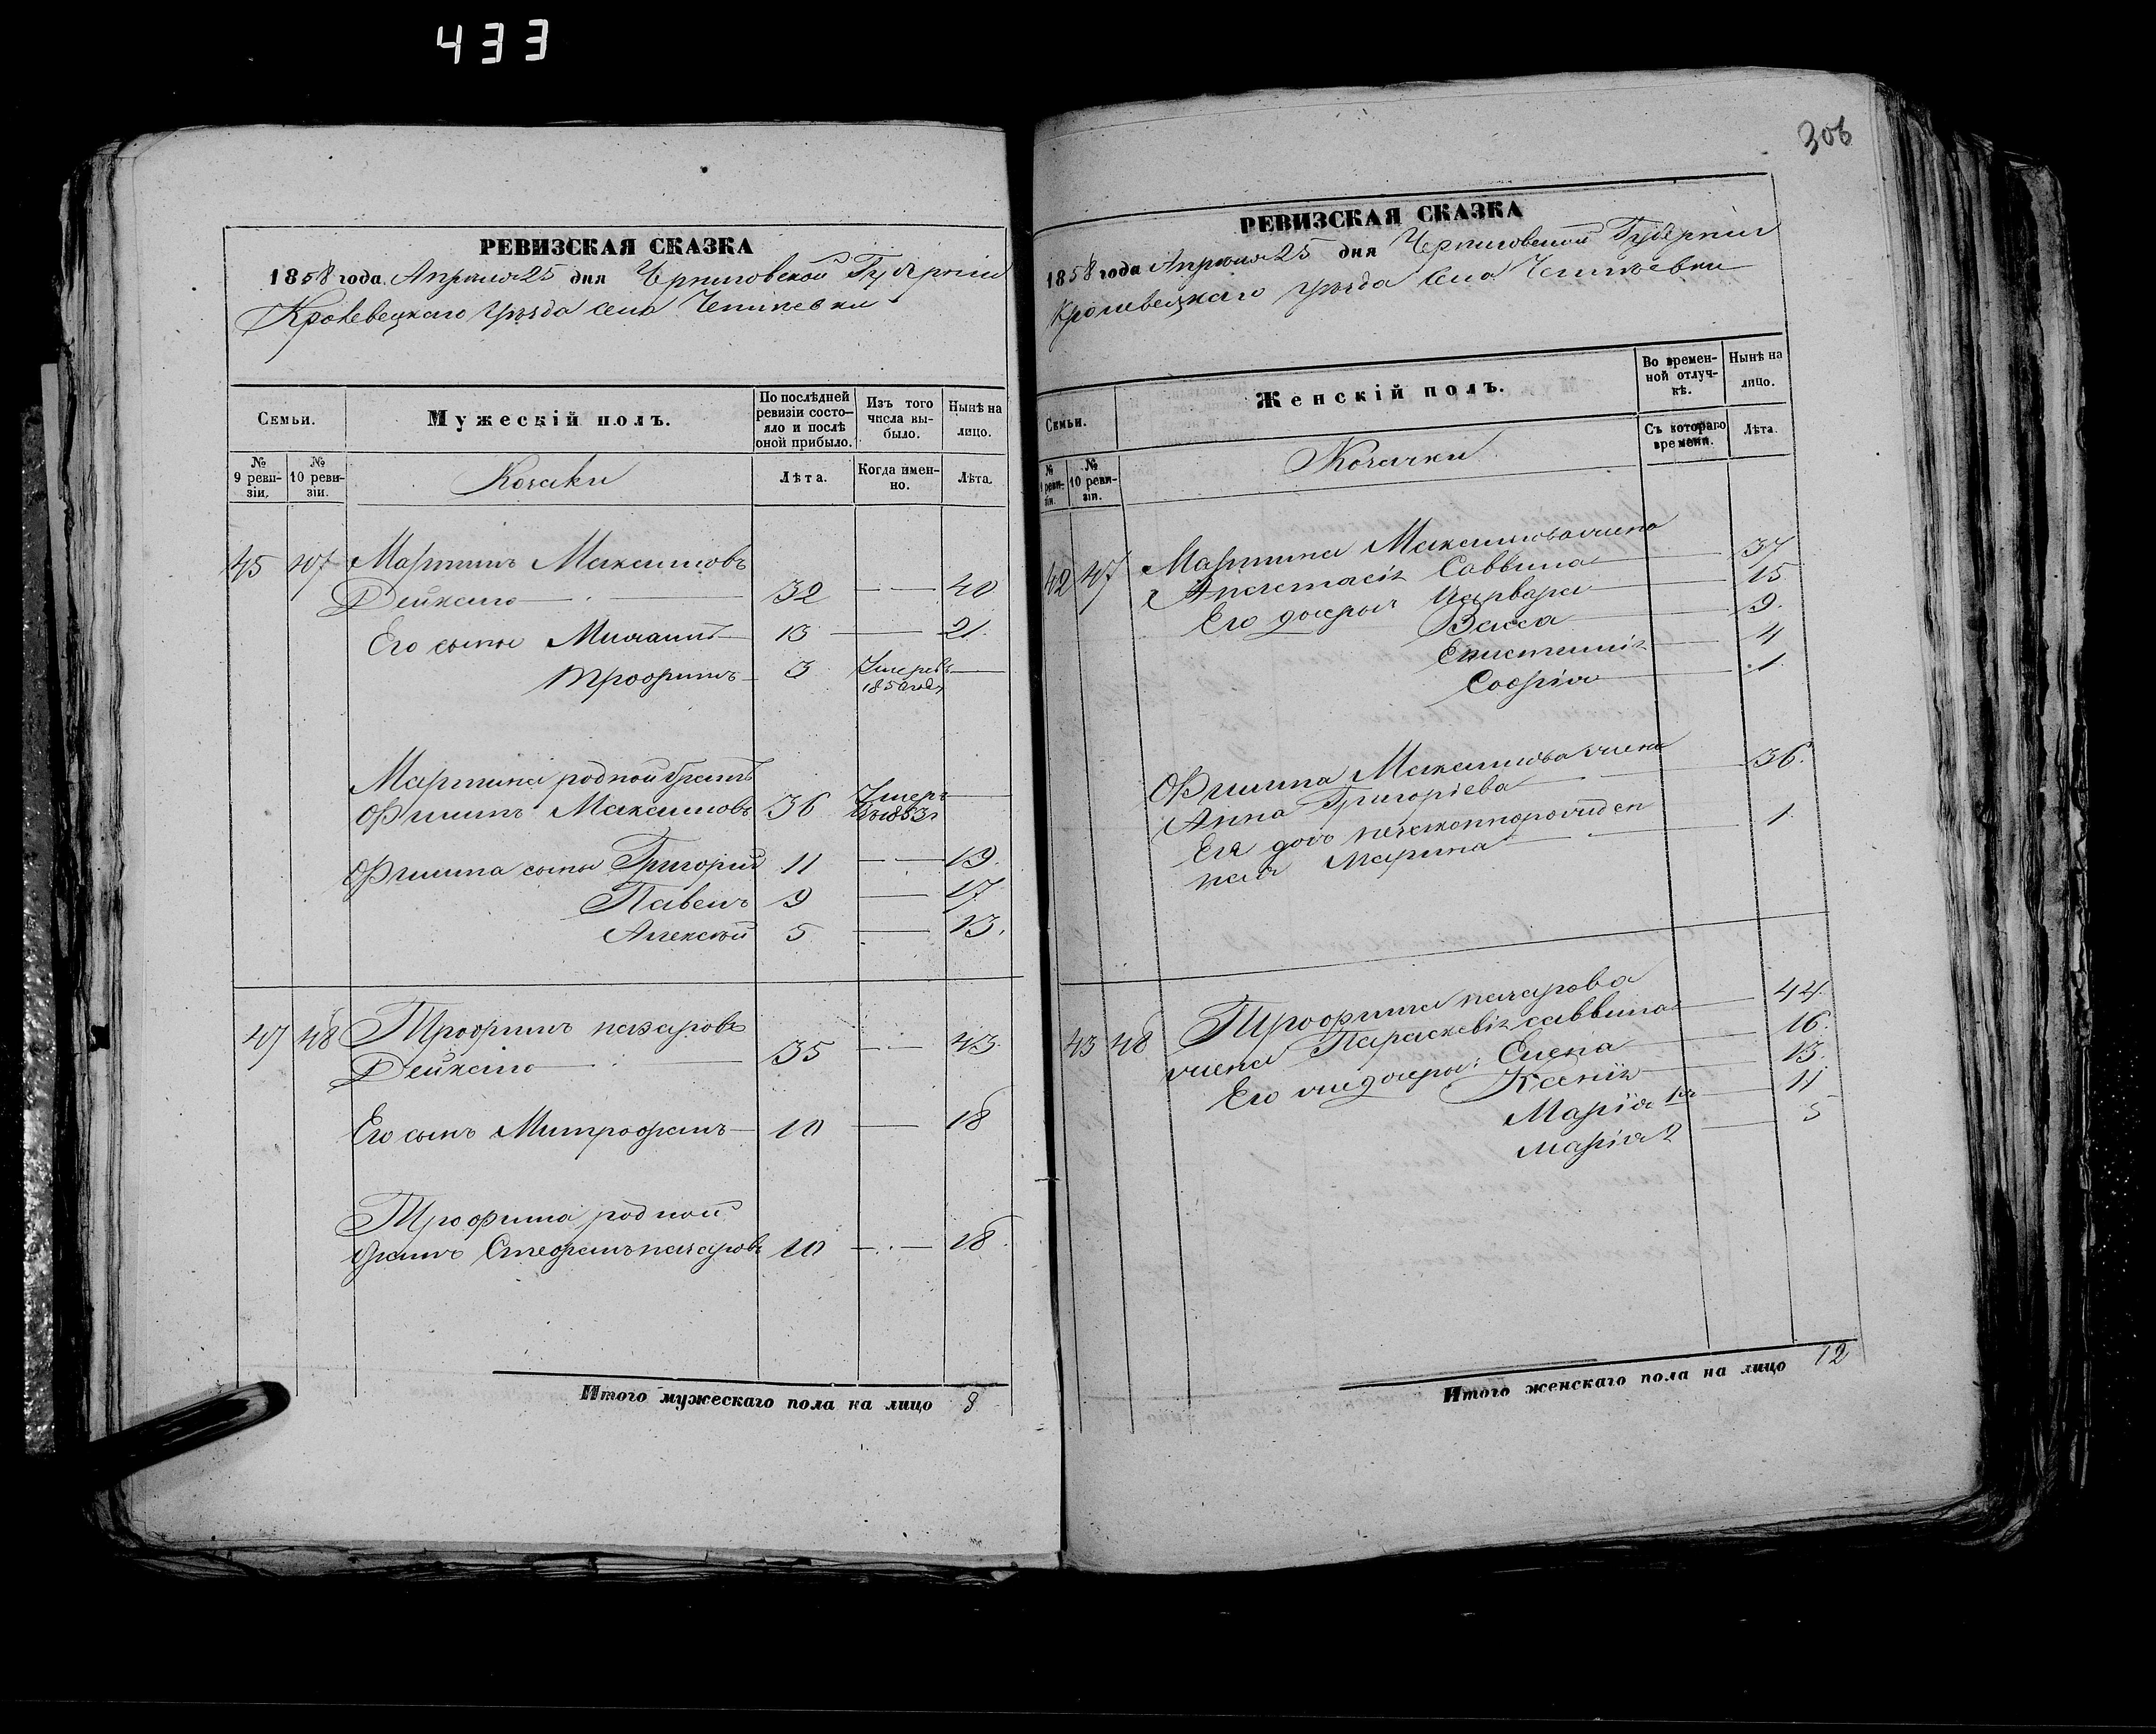 433
306
РЕВИЗСКАЯ СКАЗКА
1858 года Апреля 25 дня Черниговской Губернии
Кролевецкаго уѣзда села Чепиевки
Семьи.
Мужескій полъ.
По послѣдней ревизіи состояло и послѣ оной прибыло.
Изъ того числа выбыло.
Нынѣ на лицо.
№ 9 ревизіи.
№ 10 ревизіи.
Козаки
Лѣта.
Когда именно.
Лѣта.
45 47 Мартинъ Максимовъ
Дейкало 32 40
Его сыны Михаилъ 13 21.
Трофимъ 3 Умеръ
Мартина родной братъ
Филипъ Максимовъ 36 Умеръ въ 1853
Филипа сыны Григорій 11 19.
Павелъ 9 17
Алексѣй 5 13.
47 48 Трофимъ назаровъ
Дейкало 35 43.
Его сынъ Митрофанъ 10 18
Трофима родной
братъ Стефанъ назаровъ 10 18.
Итого мужескаго пола на лицо 8
РЕВИЗСКАЯ СКАЗКА
1858 года Апреля 25 дня Черниговской Губерніи
Кролевецкаго уѣзда села Чепиевки
Семьи.
Женскій полъ.
Во временной отлучкѣ.
Нынѣ на лицо.
№ 9 ревизіи.
№ 10 ревизіи.
Козачки
Съ котораго времени.
Лѣта.
42 47 Мартина Максимова жена
Анастасія Саввина 37
Его дочери Варвара 15
Васса 9.
Епистимія 4
Софія 1.
Филипа Максимова жена
Анна Григоріева 36.
Ея дочь незаконнорожден
ная Марина 1.
43 48 Трофима назарова
жена Параскевія саввина 44.
Его же дочери: Елена 16.
Ксенія 13.
Марія 1я 11
Марія 2 5
Итого женскаго пола на лицо 12